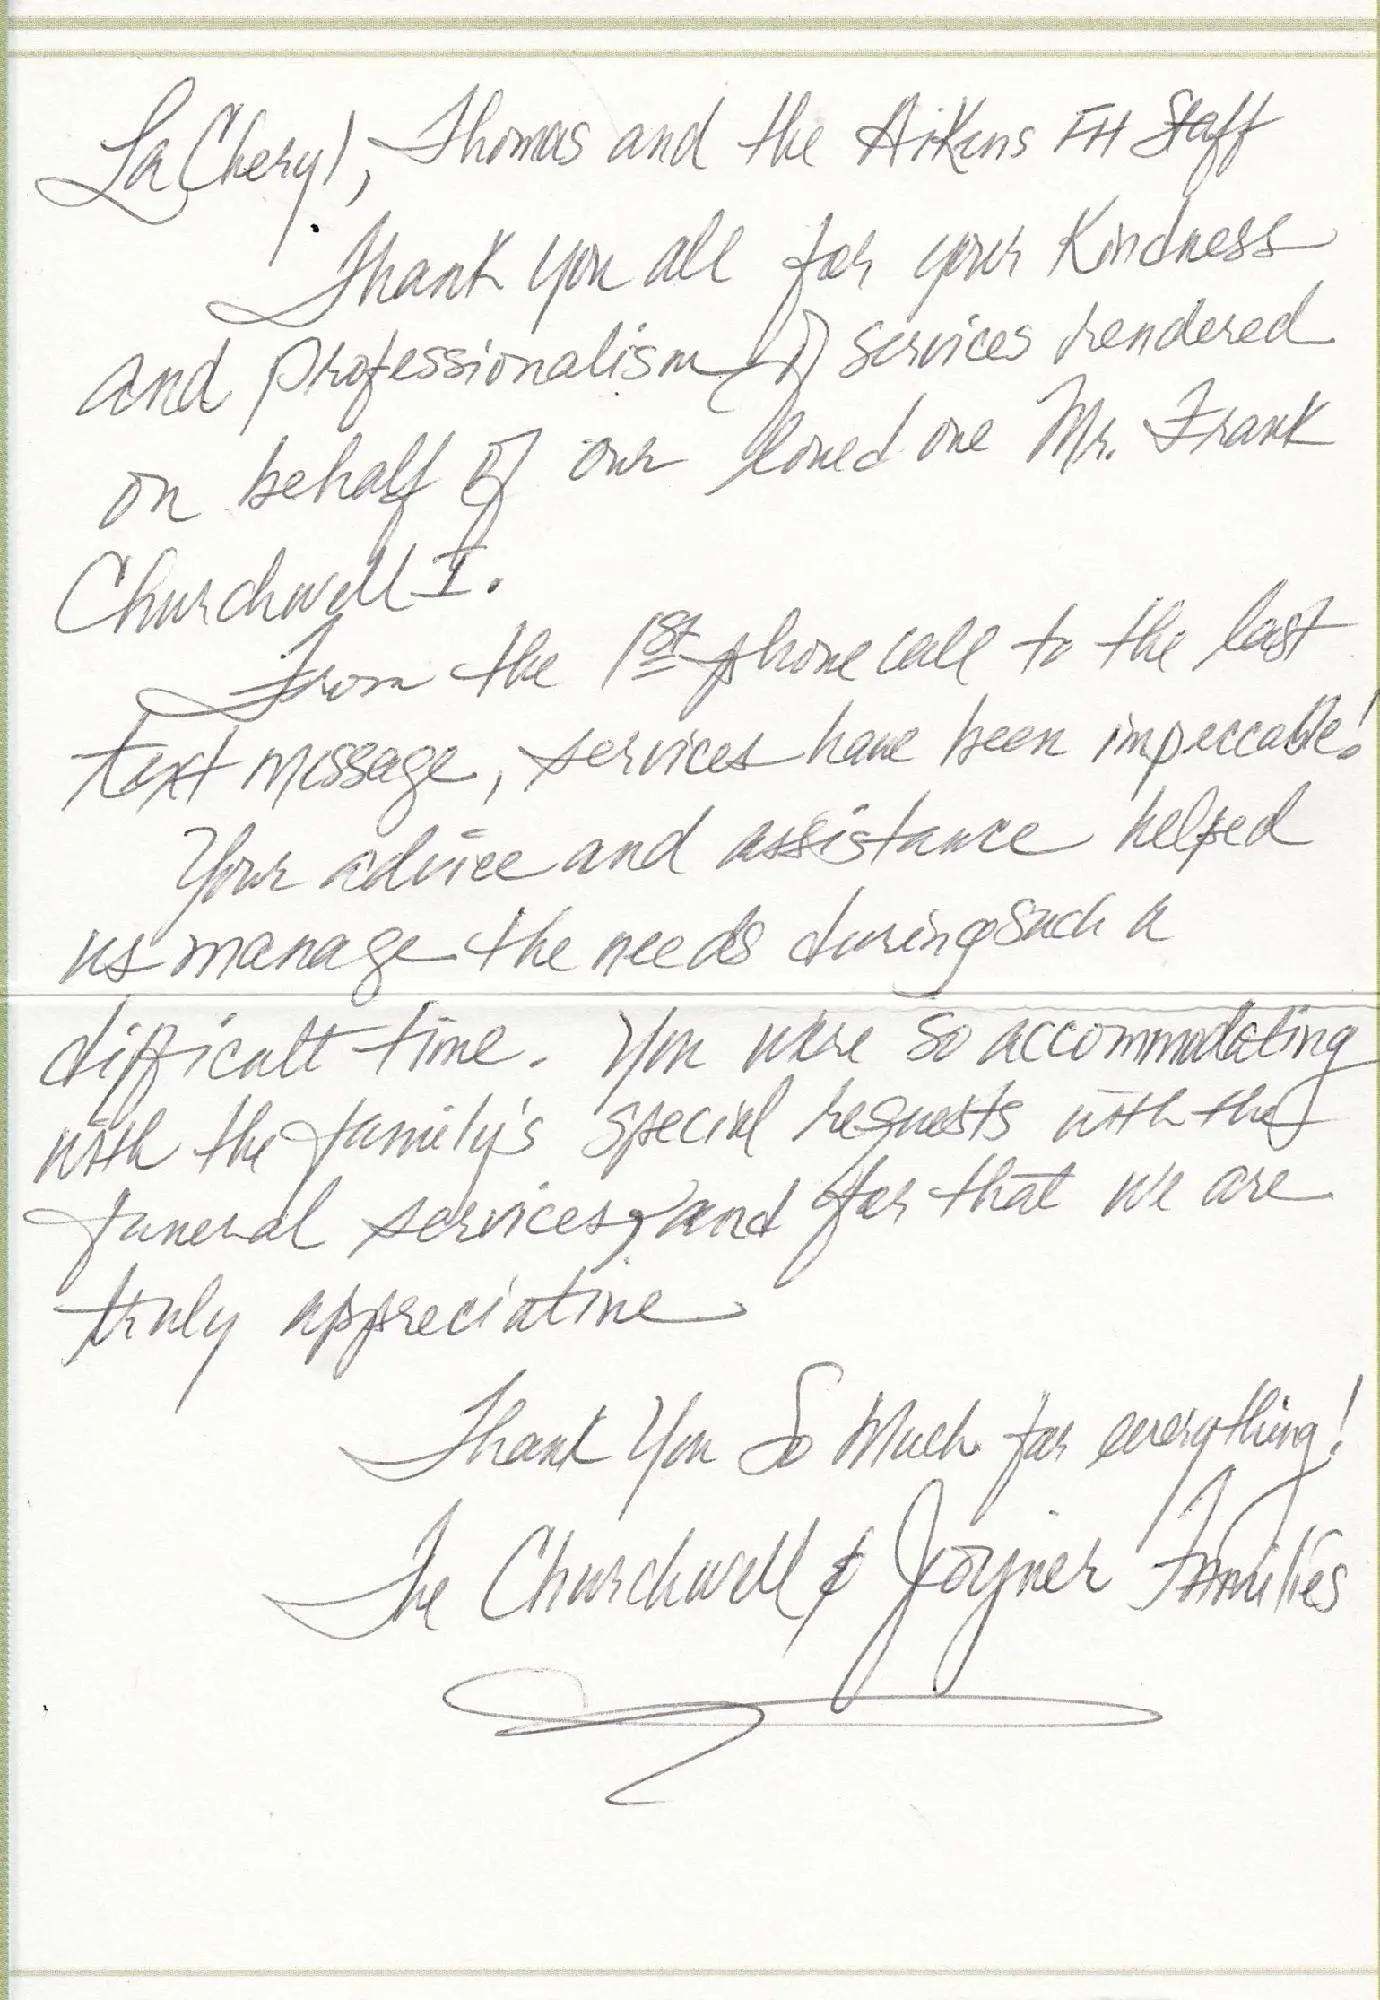 LaCheryl, Thomas and the Aikens FH Staff
Thank you all for your Kindness
and professionalism of services rendered
on behalf of our loved one Mr. Frank
Churchwell I.
From the 1st phone call to the last
text message, services have been impeccable!
Your advice and assistance helped
us manage the needs during such a
difficult time. You were so accommodating
with the family's special requests with the
funeral services, and for that we are
truly appreciative
Thank You So Much for everything!
The Churchwell & Joyner Families